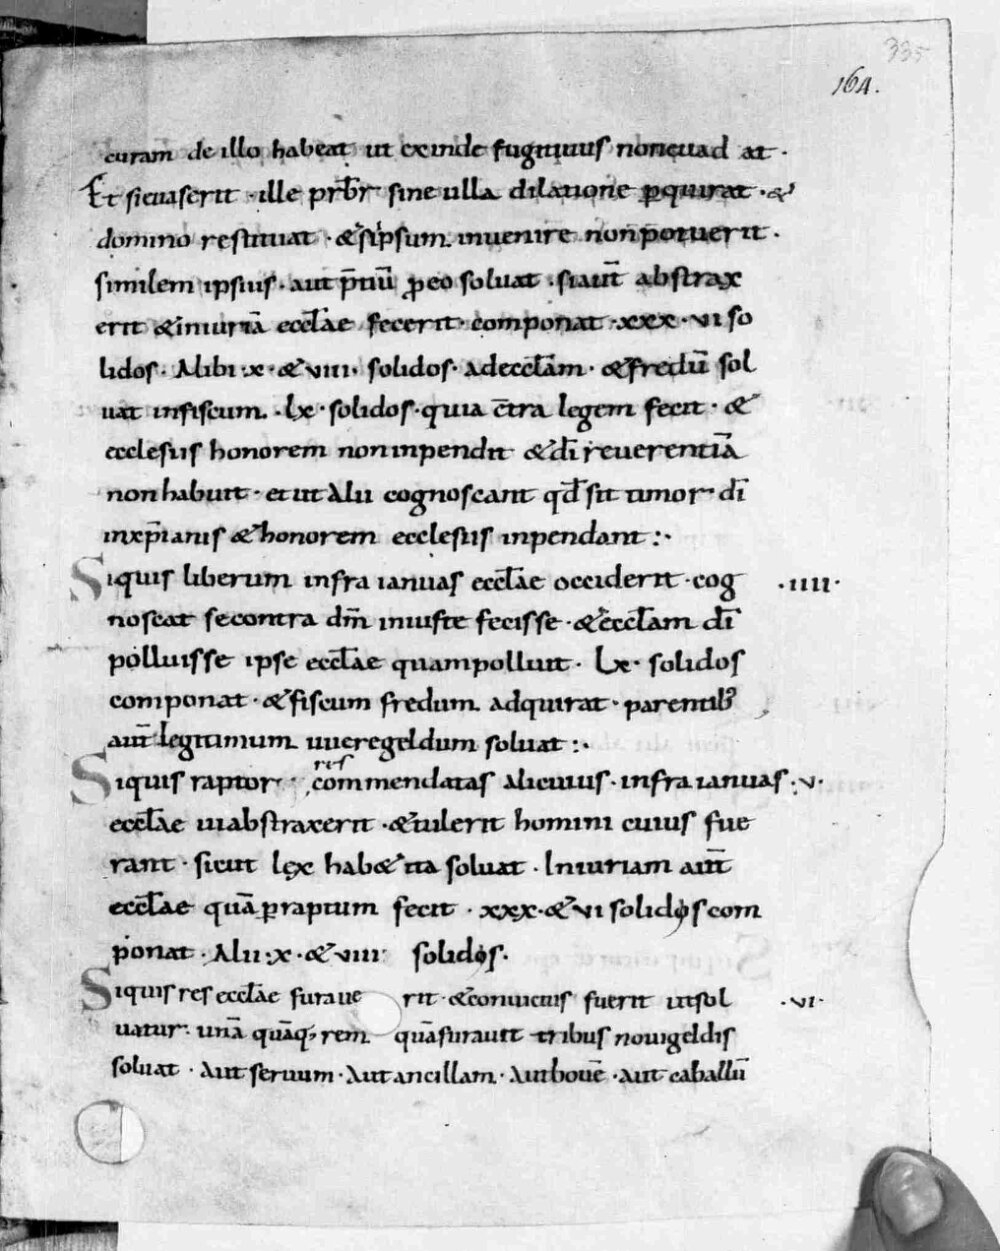 335
164.
curam de illo habeat ut exinde fugitiuus non euad at ·
Et si euaserit · ille prb̄r sine ulla dilatione ꝑquirat · &
domino restituat · & si ipsum inuenire non potuerit ·
similem ipsius · aut p̄tiū ꝓ eo soluat · si aut̄ abstrax
erit & iniuriā eccl̄ae fecerit · componat · xxx · vi so
lidos · Alibi · x · & viii · solidos · ad eccl̄am · & fredū sol
uat in fiscum · lx · solidos · quia c̄tra legem fecit · &
ecclesiis honorem non inpendit & dī reuerentiā
non habuit · et ut alii cognoscant qd̄ sit timor dī
in xp̄ianis & honorem ecclesiis inpendant :·
Siquis liberum infra ianuas eccl̄ae occiderit · cog · iiii ·
noscat se contra dm̄ iniuste fecisse · & eccl̄am dī
polluisse ipse eccl̄ae quam polluit · Lx · solidos
componat · & fiscum fredum adquirat · parentib;
aut̄ legitimum uueregeldum soluat :·
Siquis raptor · res commendatas alicuius · infra ianuas · v ·
eccl̄ae ui abstraxerit · & tulerit homini cuius fue
rant · sicut lex hab& ita soluat · Iniuriam aut̄
eccl̄ae quā ꝑ raptum fecit · xxx · & vi solidos com
ponat · Alii · x · & viii solidos ·
Siquis res eccl̄ae furaue rit · & conuictus fuerit ut sol · vi ·
uatur · unā quāq; rem quā furauit tribus nouigeldis
soluat · Aut seruum · Aut ancillam · Aut bouē · aut caballū